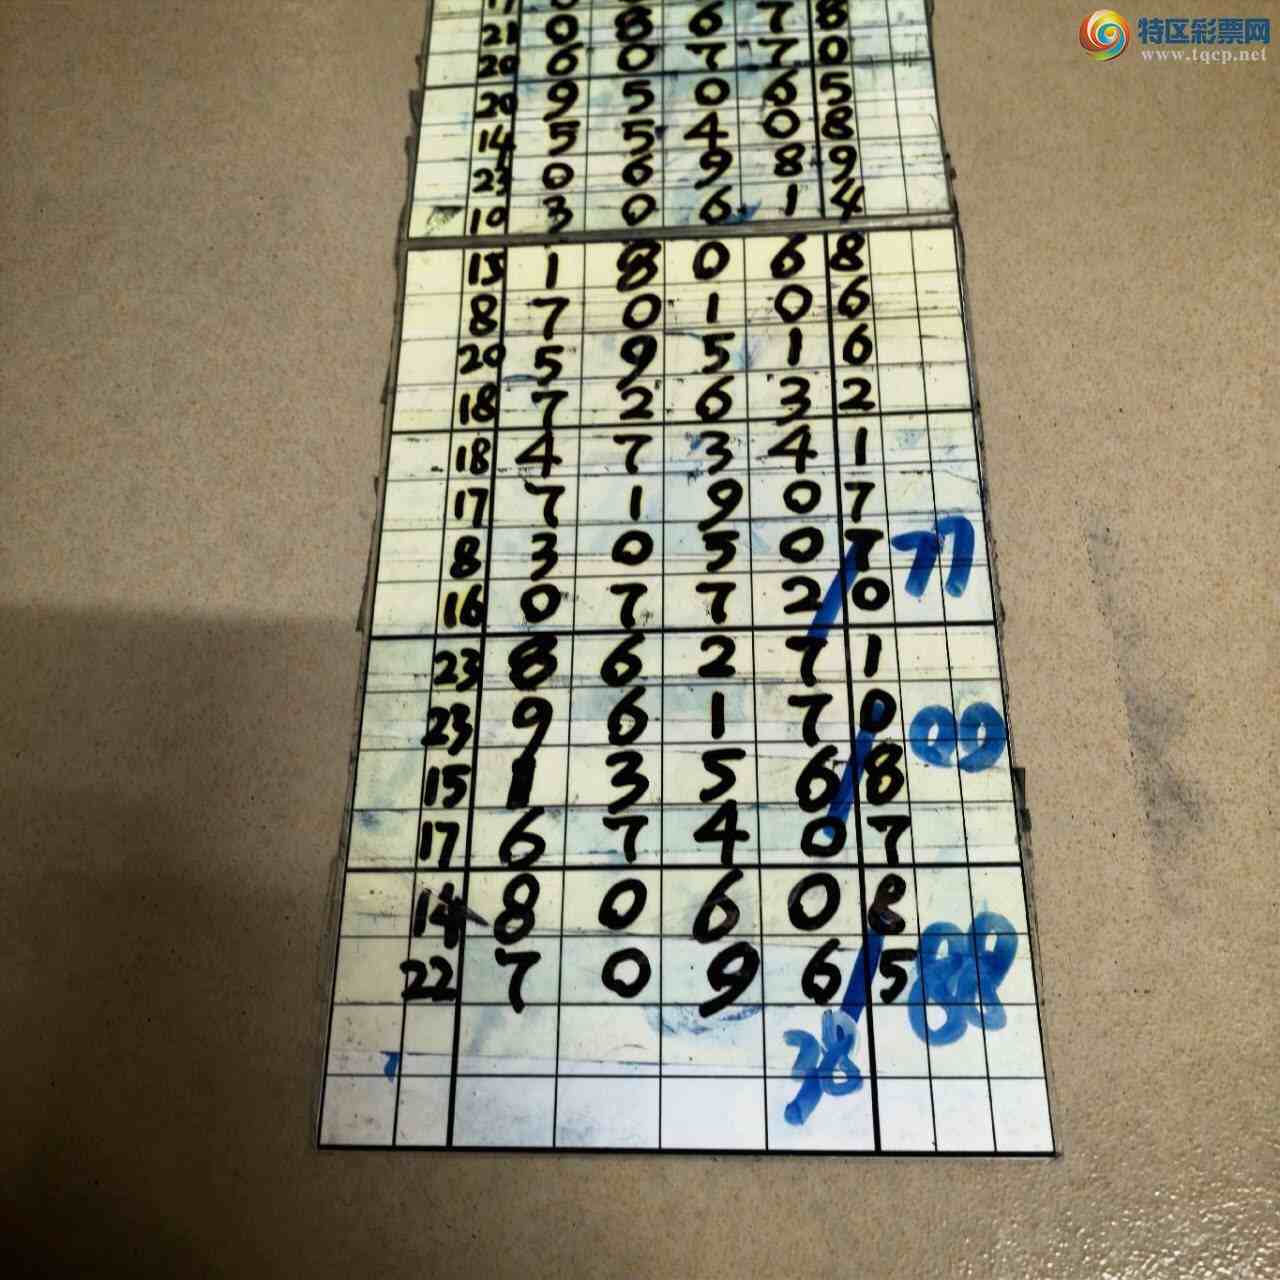 特区彩票网
www.tqcp.net
21 0 8 6 7 8
20 6 0 7 7 0
20 9 5 0 6 5
14 5 5 4 0 8
23 0 6 9 8 9
10 3 0 6 1 4
15 1 8 0 6 8
8 7 0 1 0 6
20 5 9 5 1 6
18 7 2 6 3 2
18 4 7 3 4 1
17 7 1 9 0 7
8 3 0 5 0 7 77
16 0 7 7 2 0
23 8 6 2 7 1
23 9 6 1 7 0 00
15 1 3 5 6 8
17 6 7 4 0 7
14 8 0 6 0 8
22 7 0 9 6 5 88
38